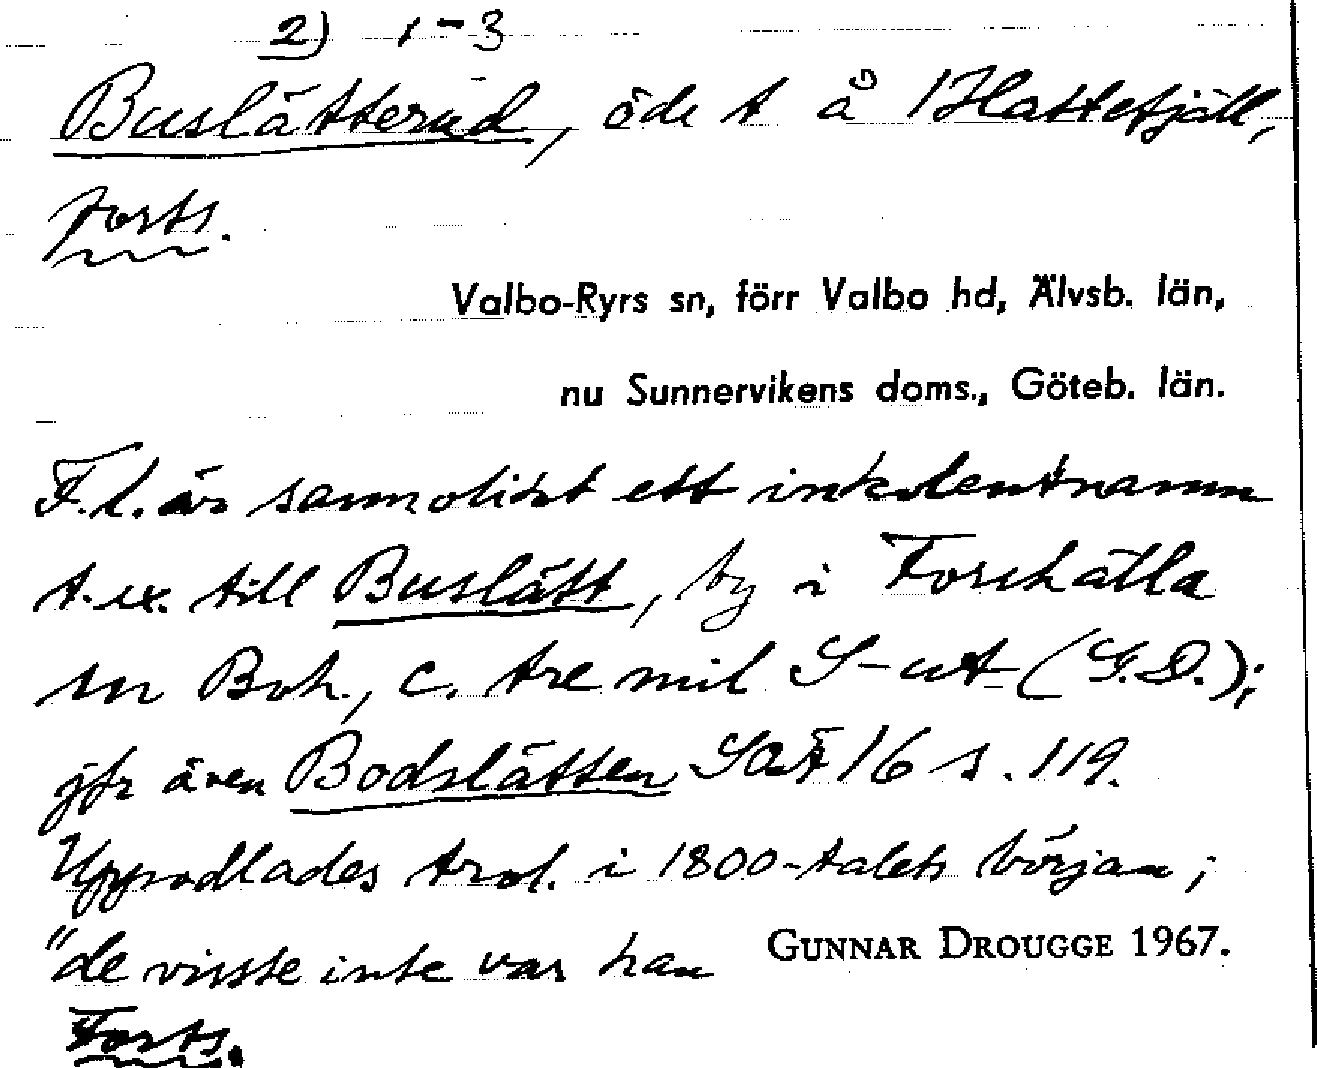 2) 1-3
Buslätterud, öde t å 1 Hattefjäll,
forts.
Valbo-Ryrs sn, förr Valbo hd, Älvsb. län,
nu Sunnervikens doms., Göteb. län.
F.l. är sannolikt ett inkolentnamn
t.ex. till Buslätt, by i Forshälla
sn Boh., c. tre mil S-ut (G.D.);
jfr även Bodslätten SOÄ 16 s. 119.
Uppodlades trol. i 1800-talets början;
"de visste inte var han
GUNNAR DROUGGE 1967.
Forts.